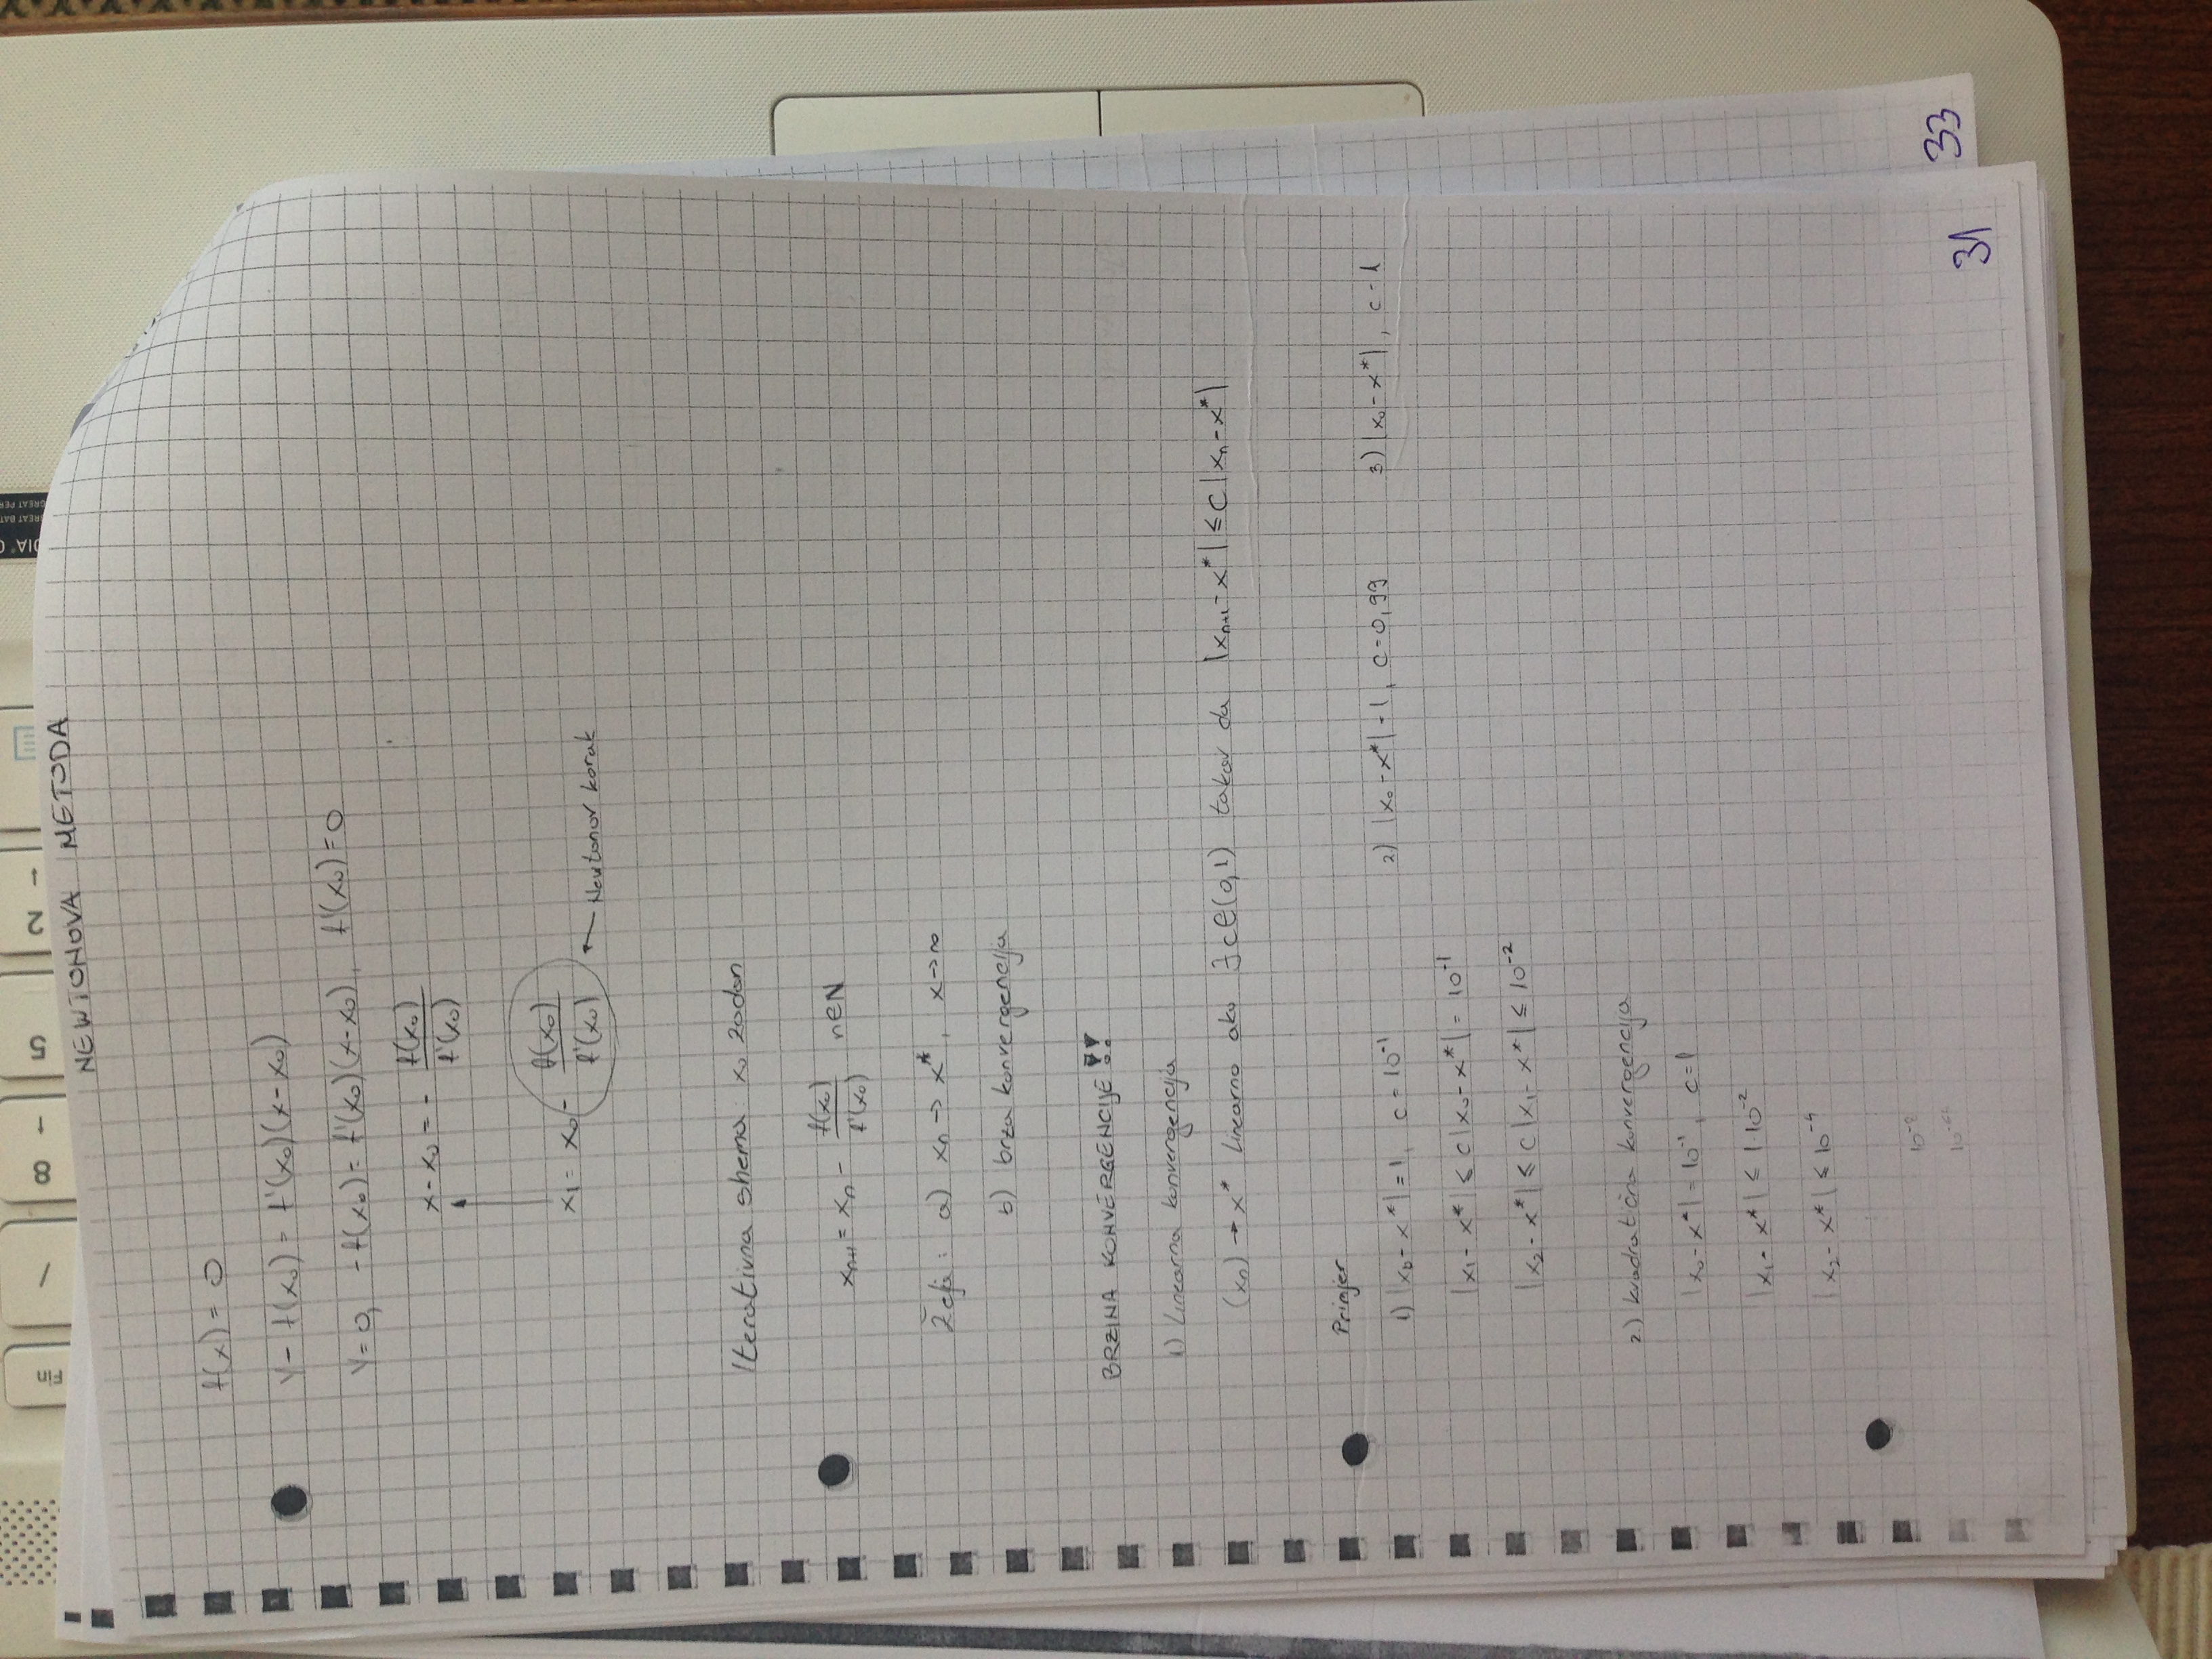 Fin
/
8
5
2
NEWTONOVA METODA
f(x) = 0
y - f(x₀) = f'(x₀)(x - x₀)
y = 0, -f(x₀) = f'(x₀)(x - x₀), f'(x₀) = 0
x - x₀ = - f(x₀) / f'(x₀)
x₁ = x₀ - f(x₀) / f'(x₀) ← Newtonov korak
Iterativna shema: x₀ zadan
xₙ₊₁ = xₙ - f(x₀) / f'(x₀) n∈N
Želja: a) xₙ → x*, x → ∞
b) brza konvergencija
BRZINA KONVERGENCIJE !!
1) Linearna konvergencija
(xₙ) → x* linearno ako ∃ c∈(0,1) takav da |xₙ₊₁ - x*| ≤ c |xₙ - x*|
Primjer
1) |x₀ - x*| = 1, c = 10⁻¹ 2) |x₀ - x*| = 1, c = 0,99 3) |x₀ - x*|, c = 1
|x₁ - x*| ≤ c |x₀ - x*| = 10⁻¹
|x₂ - x*| ≤ c |x₁ - x*| ≤ 10⁻²
2.) kvadratična konvergencija
|x₀ - x*| = 10⁻¹, c = 1
|x₁ - x*| ≤ 1·10⁻²
|x₂ - x*| ≤ 10⁻⁴
10⁻⁸
31
33